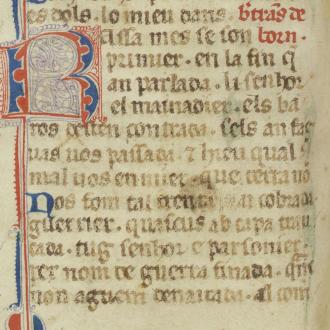 es dols. lo mieu dans. b'trãs de
Rassa mes se son born.
primier. en la fin q̃
an parlada. li senhor
el mainadier. els ba
ros desten contrada. sels an fag
uas uos passada. ⁊ hieu qual
mal uos en mier. que terra uo
Nos tom tal trenta cobrad
guerrier. quascus ab capa trau
cada. tug senhor e parsonier.
per nom de guerra finada.
non aguem denairada. al com